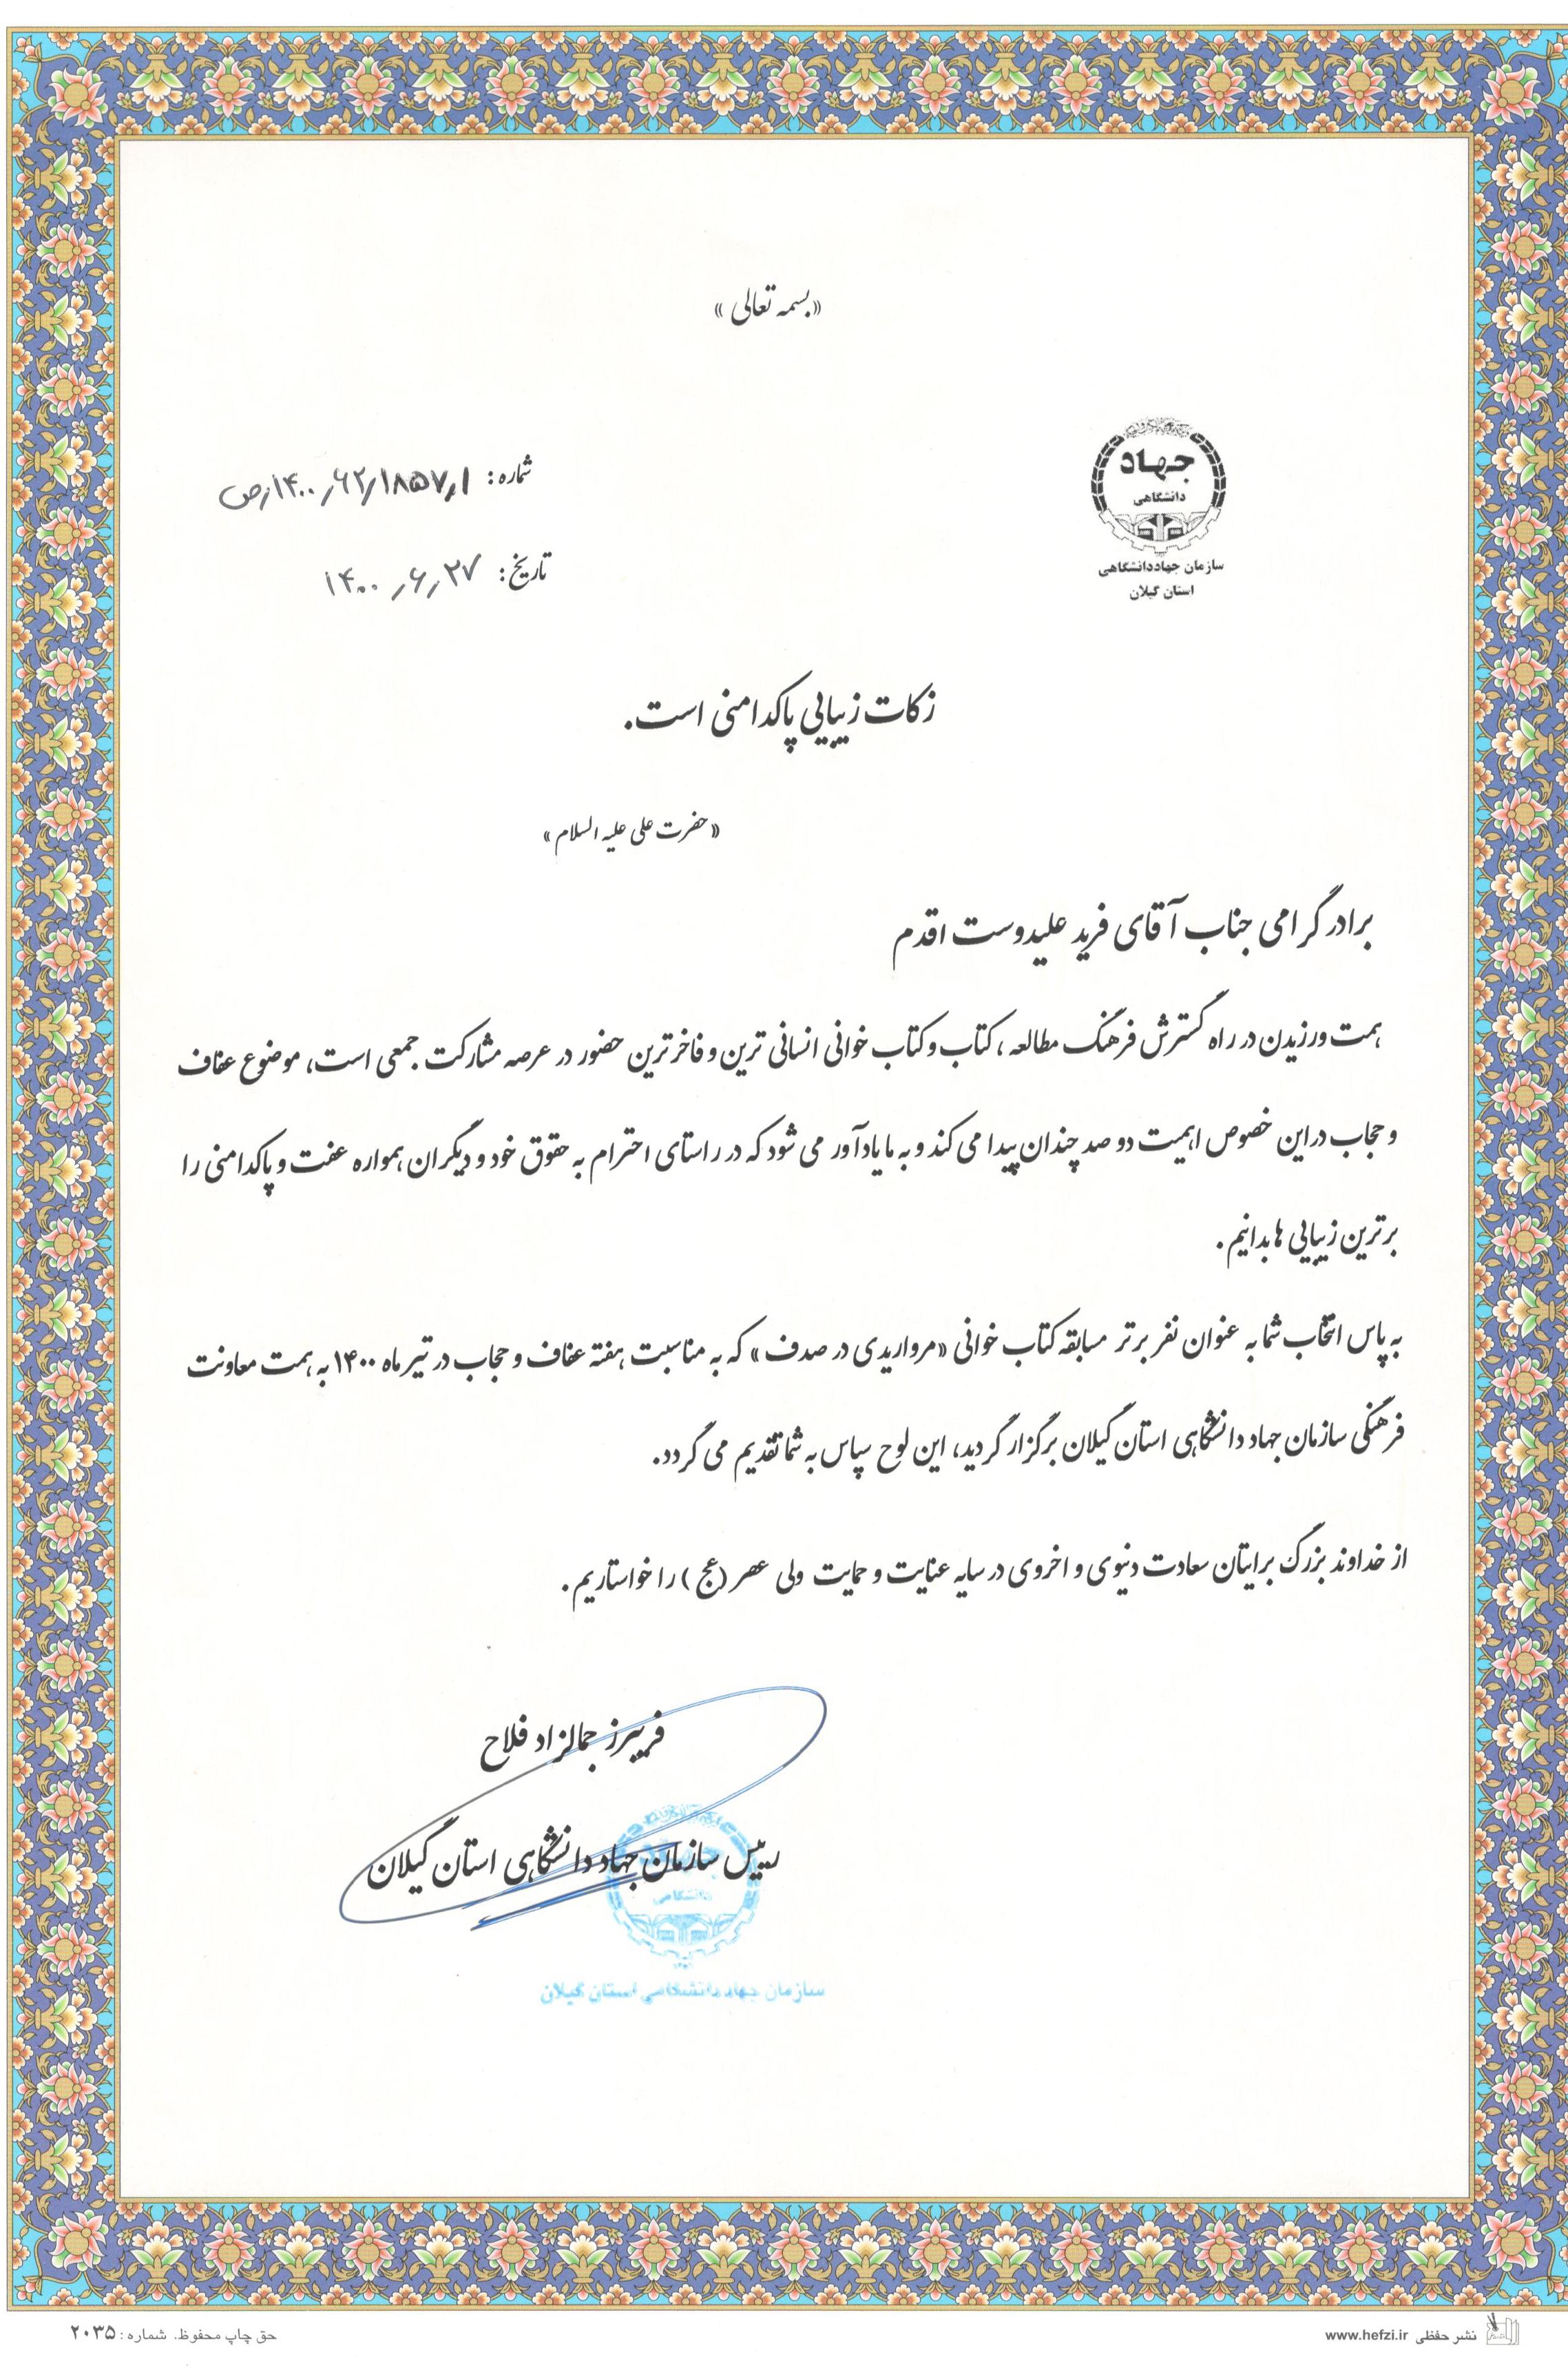 «بسمه تعالی»
جهاد
دانشگاهی
سازمان جهاددانشگاهی
استان گیلان
شماره: ۱۴۰۰٫۶۲٫۱۸۵۷٫۱٫ص
تاریخ: ۱۴۰۰٫۶٫۲۷
زکات زیبایی پاکدامنی است.
«حضرت علی علیه السلام»
برادر گرامی جناب آقای فرید علیدوست اقدم
همت ورزیدن در راه گسترش فرهنگ مطالعه، کتاب و کتاب خوانی انسانی ترین و فاخرترین حضور در عرصه مشارکت جمعی است، موضوع عفاف
و حجاب دراین خصوص اهمیت دو صد چندان پیدا می کند و به ما یادآور می شود که در راستای احترام به حقوق خود و دیگران همواره عفت و پاکدامنی را
برترین زیبایی ها بدانیم.
به پاس انتخاب شما به عنوان نفر برتر مسابقه کتاب خوانی «مرواریدی در صدف» که به مناسبت هفته عفاف و حجاب در تیر ماه ۱۴۰۰ به همت معاونت
فرهنگی سازمان جهاد دانشگاهی استان گیلان برگزار گردید، این لوح سپاس به شما تقدیم می گردد.
از خداوند بزرگ برایتان سعادت دنیوی و اخروی در سایه عنایت و حمایت ولی عصر (عج) را خواستاریم.
فریبرز جمالزاد فلاح
رییس سازمان جهاد دانشگاهی استان گیلان
دانشگاهی
سازمان جهاددانشگاهی استان گیلان
نشر حفظی www.hefzi.ir
حق چاپ محفوظ. شماره: ۲۰۳۵